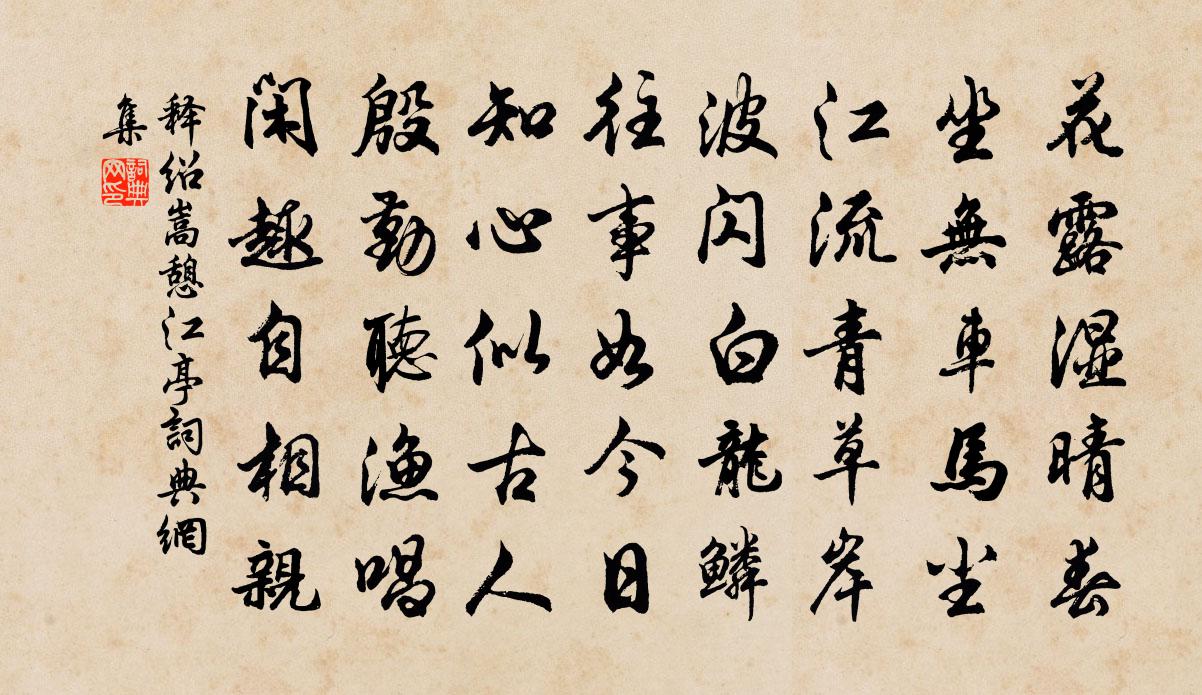 花露濕晴春
坐無車馬尘
江流青草岸
波闪白龍鱗
往事如今日
知心似古人
殷勤聽漁唱
闲趣自相親
释绍嵩憩江亭詞典網
集
詞典
网印